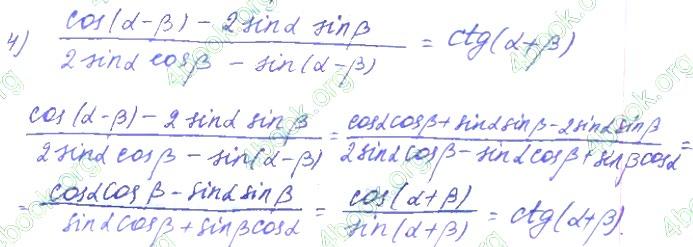 4) (cos(α-β) - 2 sinα sinβ)/(2 sinα cosβ - sin(α-β)) = ctg(α+β)
(cos(α-β) - 2 sinα sinβ)/(2 sinα cosβ - sin(α-β)) = (cosα cosβ + sinα sinβ - 2 sinα sinβ)/(2 sinα cosβ - sinα cosβ + sinβ cosα) =
= (cosα cosβ - sinα sinβ)/(sinα cosβ + sinβ cosα) = cos(α+β)/sin(α+β) = ctg(α+β).
4book.org